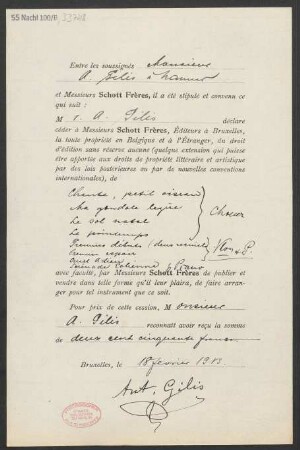 55 Nachl 100/B,
Entre les soussignés Monsieur
A. Gilis à Namur
et Messieurs Schott Frères, il a été stipulé et convenu ce
qui suit :
M r. A. Gilis déclare
céder à Messieurs Schott Frères, Éditeurs à Bruxelles,
la toute propriété en Belgique et à l'Étranger, du droit
d'édition sans réserve aucune (quelque extension qui puisse
être apportée aux droits de propriété littéraire et artistique
par des lois postérieures ou par de nouvelles conventions
internationales), de
Chante, petit oiseau
Ma gondole légère
Le sol natal
Le printemps
Chœur
Premiers débuts
Premier espoir
avec faculté, par Messieurs Schott Frères de publier et
vendre dans telle forme qu'il leur plaira, de faire arranger
pour tel instrument que ce soit.
Pour prix de cette cession, M onsieur
A. Gilis reconnaît avoir reçu la somme
de deux cent cinquante francs
Bruxelles, le 18 février 1913
Ant. Gilis